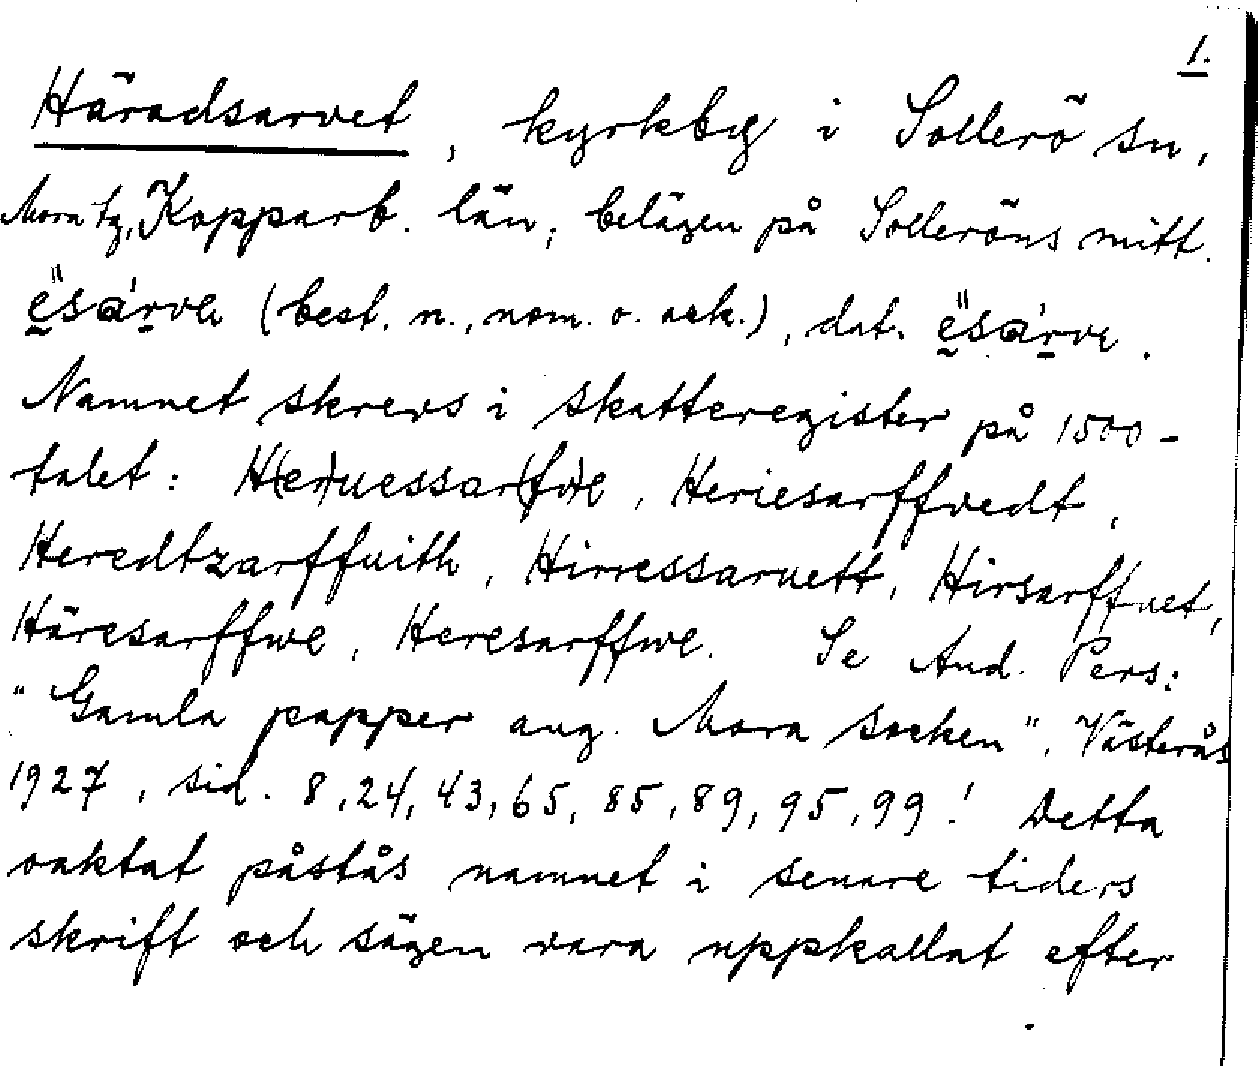 1.
Häradsarvet, kyrkby i Sollerö sn,
Mora tg, Kopparb. län, belägen på Solleröns mitt.
(best. n., nom. o. ack.), dat.
Namnet skrevs i skatteregister på 1500-
talet: H(er)uessar(fw)e, Heriesarffvedt,
Heredtzarffuith, Hirressaruett, Hirsarffuet,
Häresarffwe, Heresarffwe. Se And. Pers:
"Gamla papper ang. Mora socken", Västerås
1927, sid. 8, 24, 43, 65, 85, 89, 95, 99! Detta
oaktat påstås namnet i senare tiders
skrift och sägen vara uppkallat efter